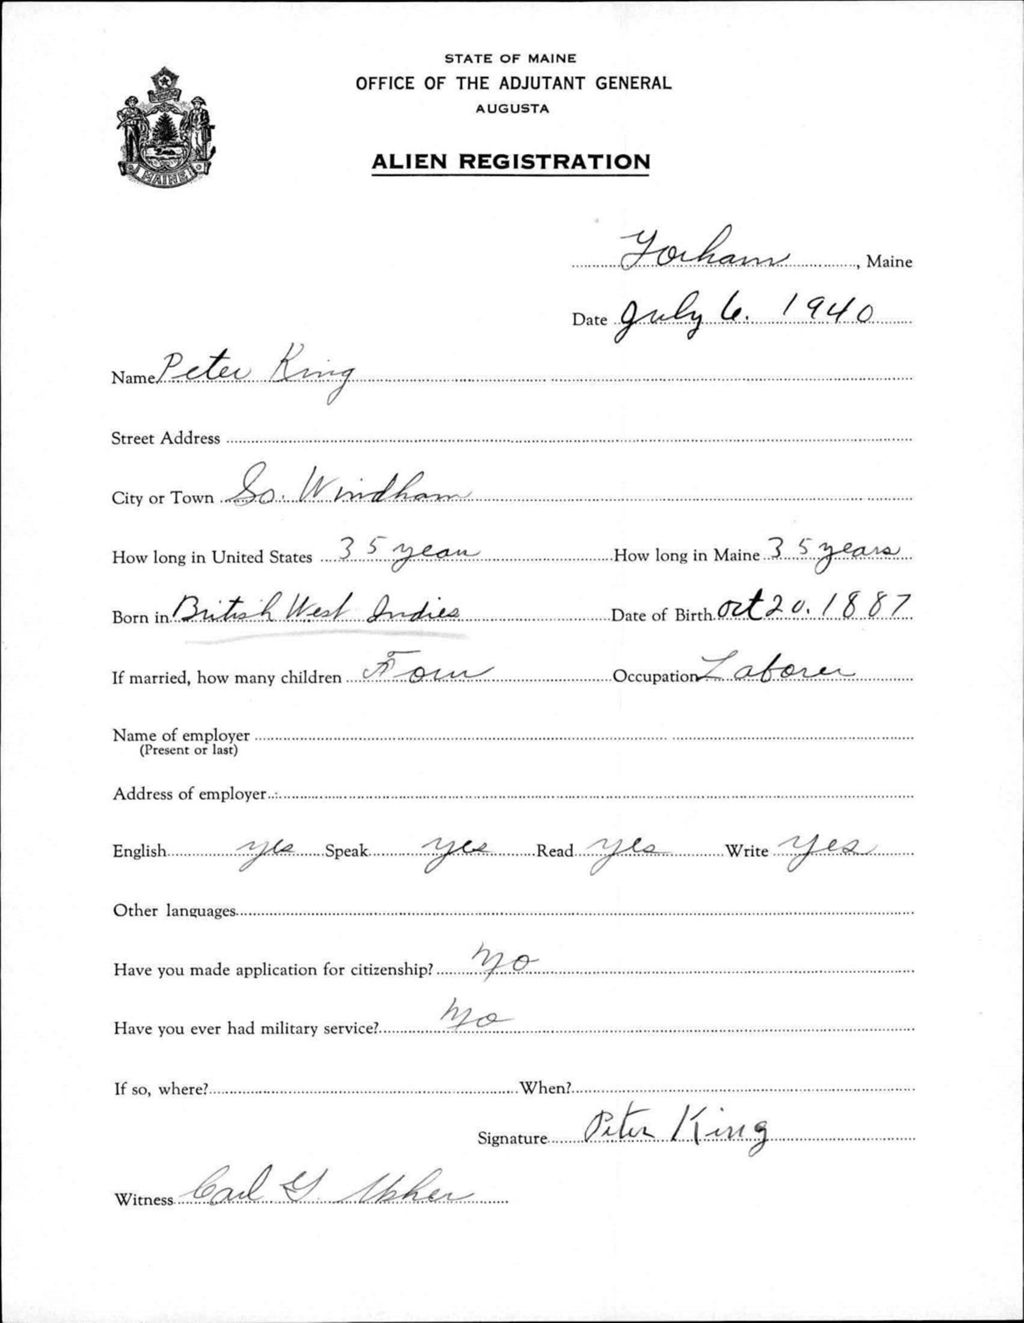 STATE OF MAINE
OFFICE OF THE ADJUTANT GENERAL
AUGUSTA
ALIEN REGISTRATION
MAINE
Gorham, Maine
Date July 6. 1940
Name Peter King
Street Address
City or Town So. Windham
How long in United States 35 years How long in Maine 35 years
Born in British West Indies Date of Birth Oct 20. 1887
If married, how many children Four Occupation Laborer
Name of employer
(Present or last)
Address of employer
English yes Speak yes Read yes Write Yes
Other languages
Have you made application for citizenship? No
Have you ever had military service? No
If so, where? When?
Signature Peter King
Witness Carl G.